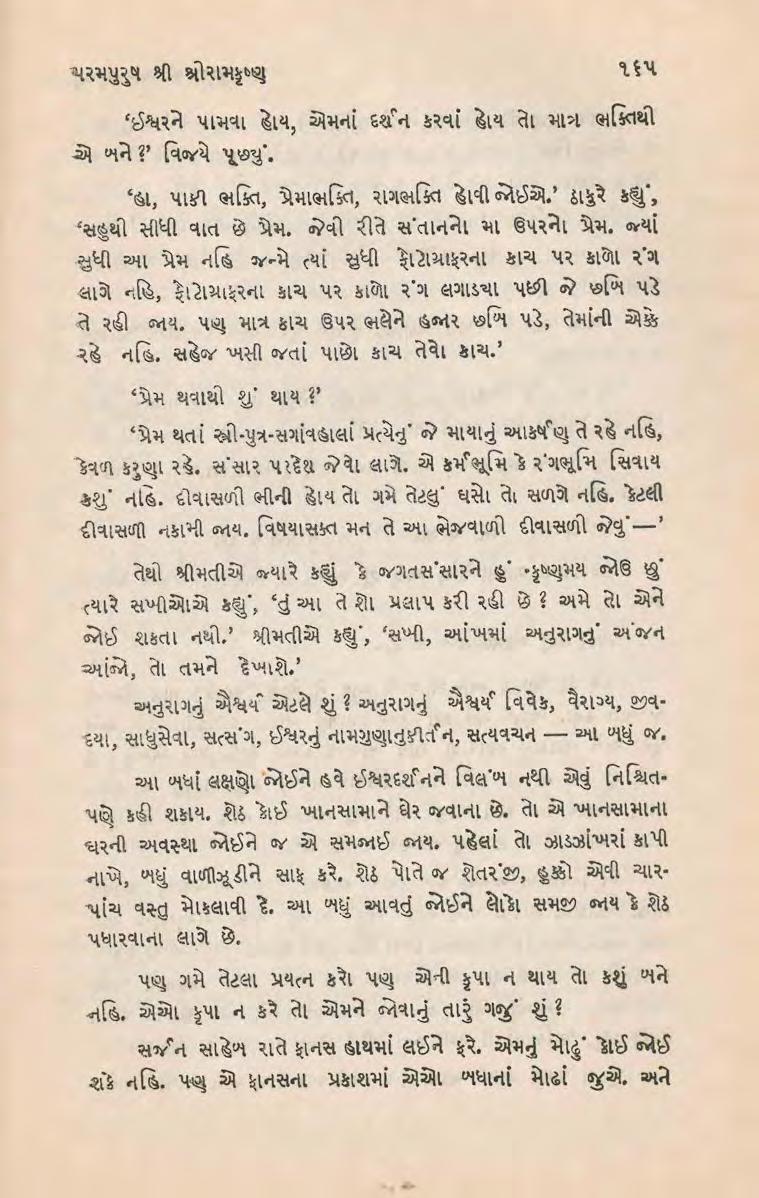 પરમપુરુષ શ્રી શ્રીરામકૃષ્ણ ૧૬૫
‘ઈશ્વરને પામવા હોય, એમનાં દર્શન કરવાં હોય તો માત્ર ભક્તિથી
એ બને?’ વિજયે પૂછ્યું.
‘હા, પાકી ભક્તિ, પ્રેમાભક્તિ, રાગભક્તિ હોવી જોઈએ.’ ઠાકુરે કહ્યું,
‘સહુથી સીધી વાત છે પ્રેમ. જેવી રીતે સંતાનનો મા ઉપરનો પ્રેમ. જ્યાં
સુધી આ પ્રેમ નહિ જન્મે ત્યાં સુધી ફોટોગ્રાફરના કાચ પર કાળો રંગ
લાગે નહિ, ફોટોગ્રાફરના કાચ પર કાળો રંગ લગાડ્યા પછી જે છબિ પડે
તે રહી જાય. પણ માત્ર કાચ ઉપર ભલેને હજાર છબિ પડે, તેમાંની એક્કે
રહે નહિ. સહેજ ખસી જતાં પાછો કાચ તેવો કાચ.’
‘પ્રેમ થવાથી શું થાય?’
‘પ્રેમ થતાં સ્ત્રી-પુત્ર-સગાંવહાલાં પ્રત્યેનું જે માયાનું આકર્ષણ તે રહે નહિ,
કેવળ કરુણા રહે. સંસાર પરદેશ જેવો લાગે. એ કર્મભૂમિ કે રંગભૂમિ સિવાય
કશું નહિ. દીવાસળી ભીની હોય તો ગમે તેટલું ઘસો તો સળગે નહિ. કેટલી
દીવાસળી નકામી જાય. વિષયાસક્ત મન તે આ ભેજવાળી દીવાસળી જેવું—’
તેથી શ્રીમતીએ જ્યારે કહ્યું કે જગતસંસારને હું કૃષ્ણમય જોઉં છું
ત્યારે સખીઓએ કહ્યું, ‘તું આ તે શો પ્રલાપ કરી રહી છે? અમે તો એને
જોઈ શકતા નથી.’ શ્રીમતીએ કહ્યું, ‘સખી, આંખમાં અનુરાગનું અંજન
આંજો, તો તમને દેખાશે.’
અનુરાગનું ઐશ્વર્ય એટલે શું? અનુરાગનું ઐશ્વર્ય વિવેક, વૈરાગ્ય, જીવ-
દયા, સાધુસેવા, સત્સંગ, ઈશ્વરનું નામગુણાનુકીર્તન, સત્યવચન — આ બધું જ.
આ બધાં લક્ષણો જોઈને હવે ઈશ્વરદર્શનને વિલંબ નથી એવું નિશ્ચિત-
પણે કહી શકાય. શેઠ કોઈ ખાનસામાને ઘેર જવાના છે. તો એ ખાનસામાના
ઘરની અવસ્થા જોઈને જ એ સમજાઈ જાય. પહેલાં તો ઝાડઝાંખરાં કાપી
નાખે, બધું વાળીઝૂડીને સાફ કરે. શેઠ પોતે જ શેતરંજી, હુક્કો એવી ચાર-
પાંચ વસ્તુ મોકલાવી દે. આ બધું આવતું જોઈને લોકો સમજી જાય કે શેઠ
પધારવાના લાગે છે.
પણ ગમે તેટલા પ્રયત્ન કરો પણ એની કૃપા ન થાય તો કશું બને
નહિ. એઓ કૃપા ન કરે તો એમને જોવાનું તારું ગજું શું?
સર્જન સાહેબ રાતે ફાનસ હાથમાં લઈને ફરે. એમનું મોઢું કોઈ જોઈ
શકે નહિ. પણ એ ફાનસના પ્રકાશમાં એઓ બધાનાં મોઢાં જુએ. અને